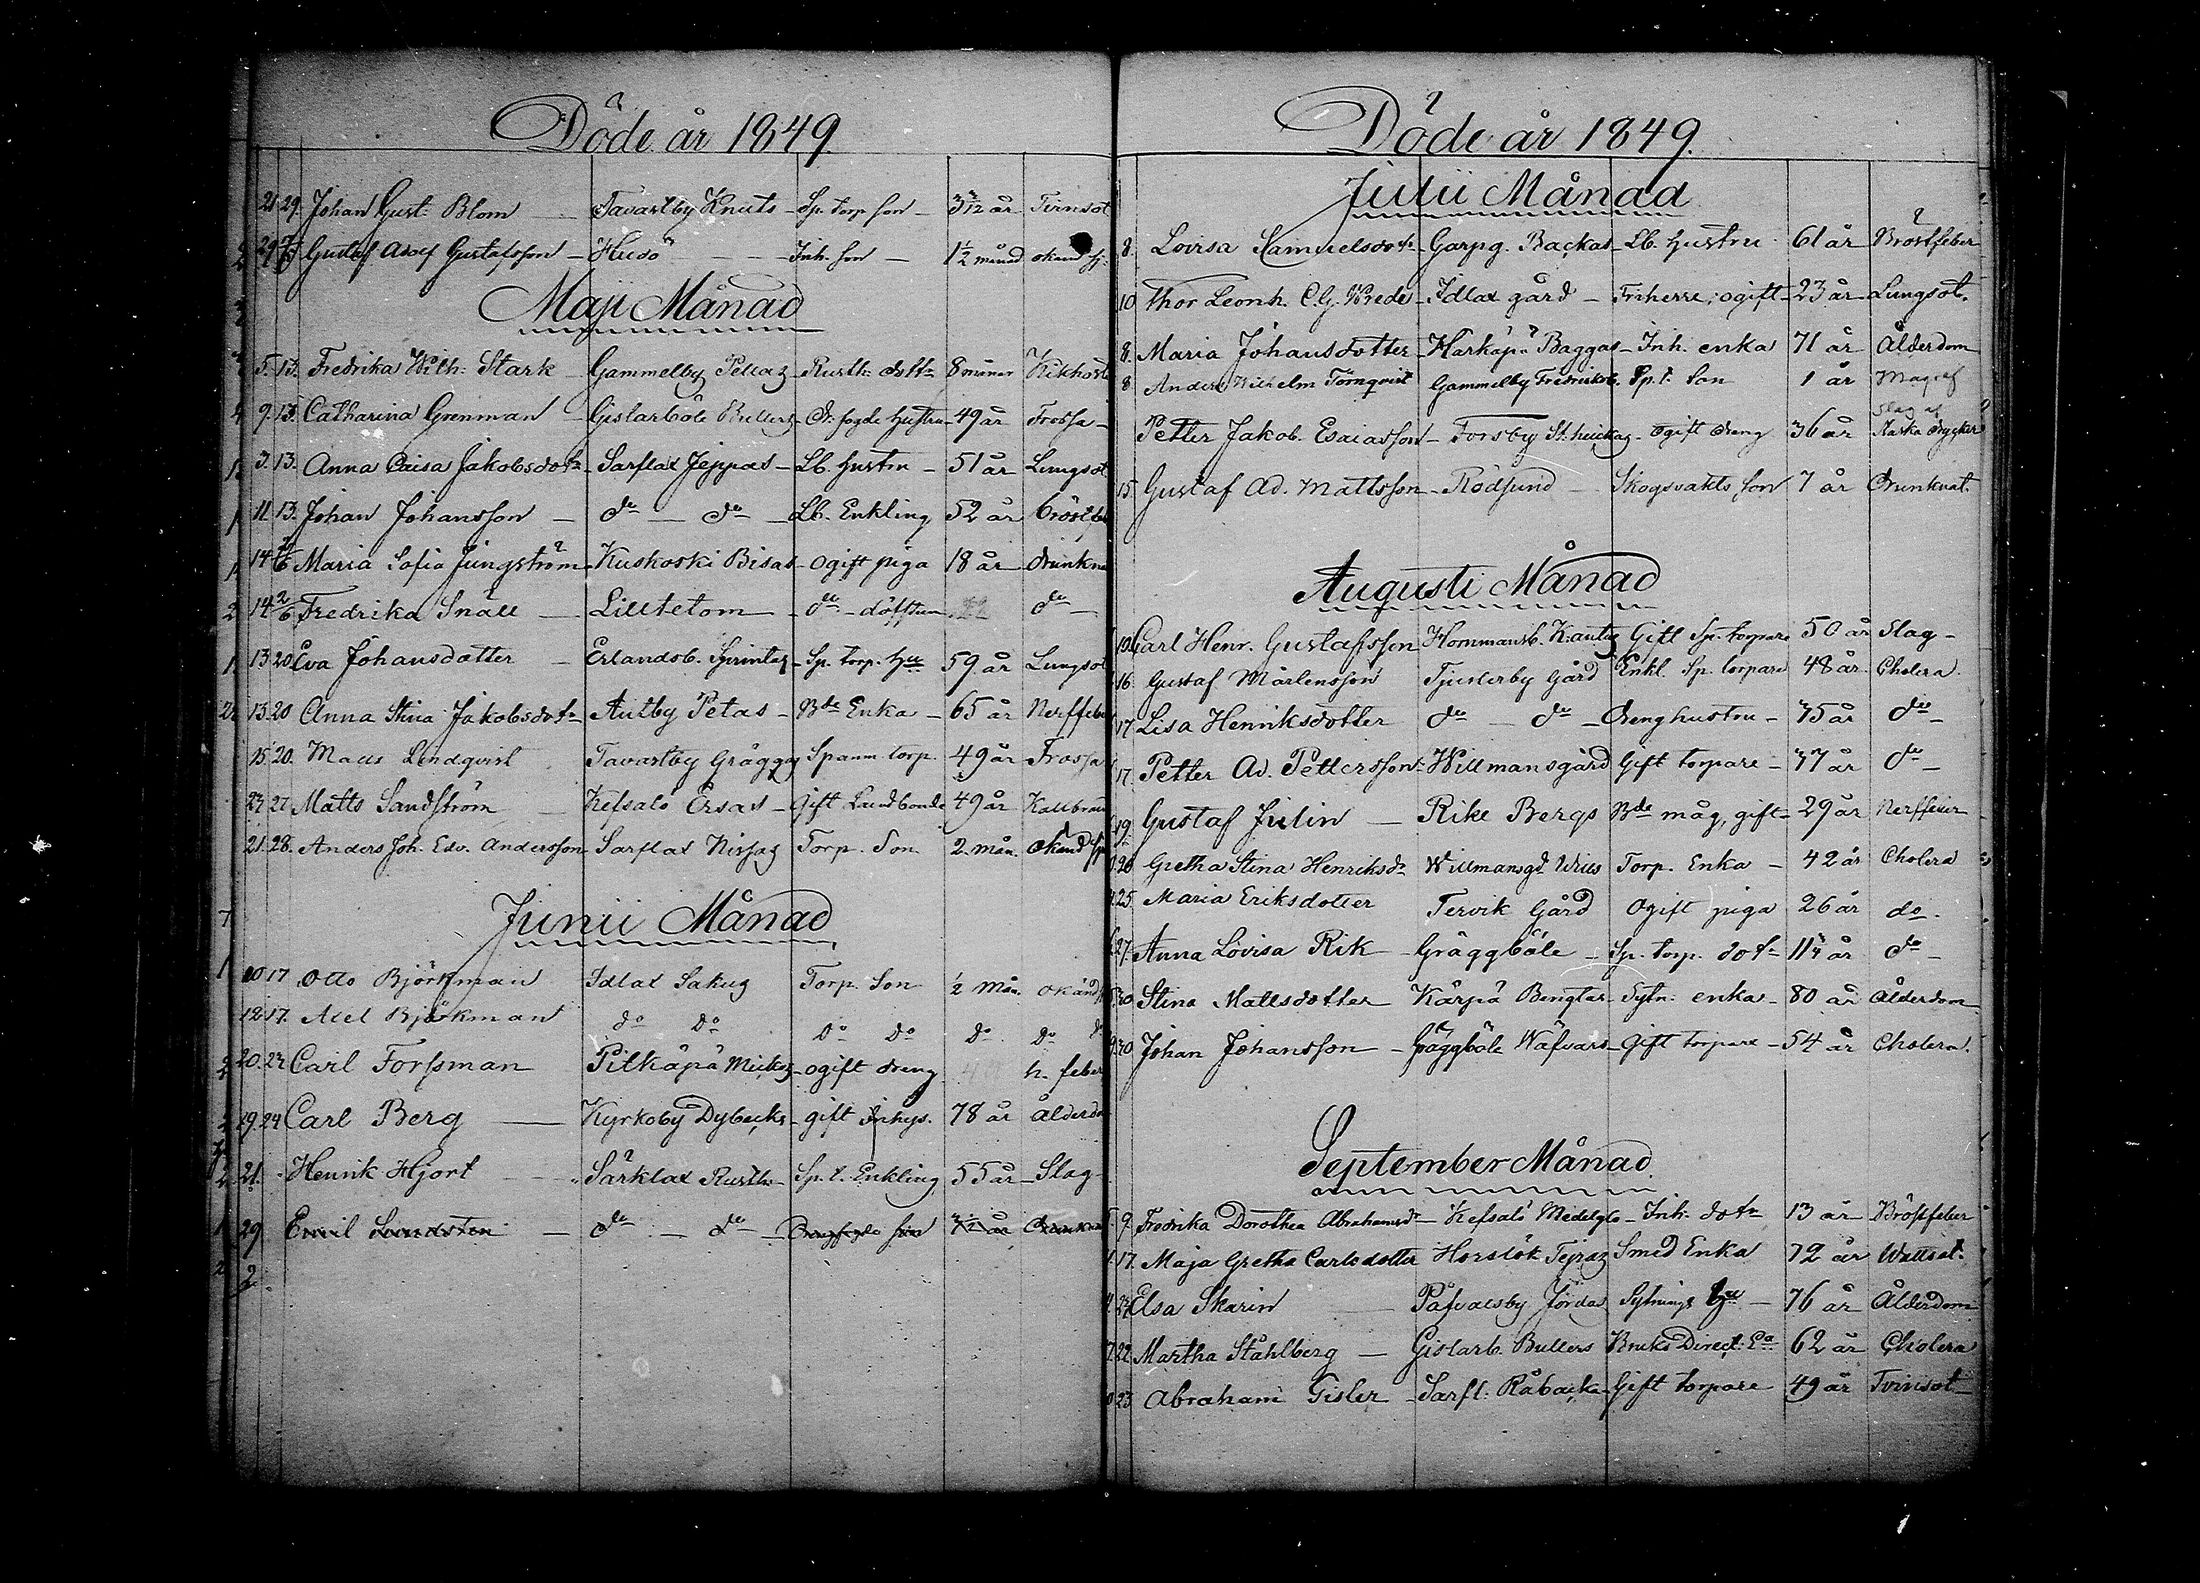 Döde år 1849.
21 29. Johan Gust. Blom — Tavastby Knuts - Sp. torp. son - 3 7/12 år Tvinsot
Gustaf Adolf Gustafsson - Husö - - - Inh. son - 1 1/2 månad okänd sj:
Maji Månad
5. 13. Fredrika Wilh. Stark - Gammelby Pellas - Rusth. dotr 8 månar Kikhosta
9. 13. Catharina Grenman - Gislarböle Bullers - Dr. fogde hustru - 49 år Frossa -
3. 13. Anna Caisa Jakobsdotr - Sarflax Jeppas - Lb. hustru - 51 år Lungsot
11. 13. Johan Johansson - do — do - Lb. Enkling 52 år bröstfeb
14. Maria Sofia Jungström - Kuskoski Bisas - ogift piga 18 år drunkna
14. 2/6 Fredrika Snäll — Lilltetom - do - döfstum 22 do -
13. 20. Eva Johansdotter - Erlandsb. - Sp. torp. hu 59 år Lungsot
13. 20 Anna Stina Jakobsdotr - Antby Petas - Bde Enka - 65 år Nerffeber
15. 20. Mats Lindqvist Tavastby Gräggas Spanm torp. 49 år - Frossa
23 27. Matts Sandström - Kefsalö Ersas - Gift Landbonde 49 år Kallbrand
21. 28. Anders Joh. Edv. Andersson Sarflax Nissas Torp. Son 2 mån. okänd sj
Junii Månad
10 17. Otto Björkman Idlax Sakus Torp. Son 1/2 Mån. okänd
12 17. Axel Björkman do do do do do do do
20. 23 Carl Forssman Pitkäpä Mickas - ogift dreng h. feber
19. 24 Carl Berg — Kyrkoby Dybecks - gift Inhys. 78 år ålderdo
21. Henrik Hjort - - Särklax Rusth. - Sp. t. Enkling 55 år - Slag
29 Emil Sundsten - do - do - Drengfogde son 3 1/2 år Drunknad
2
Döde år 1849.
Julii Månad
8. Lovisa Samuelsdotr - Garpg. Backas - Lb. hustru. 61 år Bröstfeber
10 Thor Leonh. C. G. Wrede - Idlax gård - Friherre, ogift - 23 år - Lungsot.
8. Maria Johansdotter - Harkäpä Baggas - Inh. enka 71 år Ålderdom
8. Anders Wilhelm Törnqvist Gammelby Fredriksb. Sp. t. Son 1 år Magref
Petter Jakob Esaiasson - Forsby - ogift dreng 36 år Slag af starka drycker
15. Gustaf Ad. Mattsson - Rödsund - Skogsvakts son 7 år Drunknat.
Augusti Månad
10. Carl Henr. Gustafsson Hommansb. Gift Sp. torpare 50 år Slag -
16. Gustaf Mårlensson Tjusterby Gård Enkl. Sp. torpare 48 år Cholera.
17. Lisa Henriksdotter do - do - Drenghustru - 35 år do -
17. Petter Ad. Pettersson - Willmansgård Gift torpare - 37 år do -
19. Gustaf Julin — Rike Bergs Bde måg, gift - 29 år Nerffeber
20 Gretha Stina Henriksdr Willmansgd Torp. Enka - 42 år Cholera
25. Maria Eriksdotter Tervik Gård Ogift piga 26 år do.
27. Anna Lovisa Rik - Gräggböle - Sp. torp. dotr 11 3/4 år do -
30. Stina Mattsdotter Kärpä Bengtas - Sytn. enka - 80 år Ålderdom
30. Johan Johansson - Gräggböle Wäfvars - Gift torpare - 54 år Cholera.
September Månad
9. Fredrika Dorothea Abrahamsdr - Kefsalö - Inh. dotr 13 år Bröstfeber
17. Maja Gretha Carlsdotter Horslök Smed Enka 72 år Wattsot.
Elsa Skarin - Påfvalsby Jördas Sytnings hu - 76 år Ålderdom
22. Martha Stählberg - Gislarb. Bullers Bruks Direct. Ea 62 år Cholera
23. Abraham Gisler - Sarfl. Råbacka - Gift torpare 49 år Tvinsot -